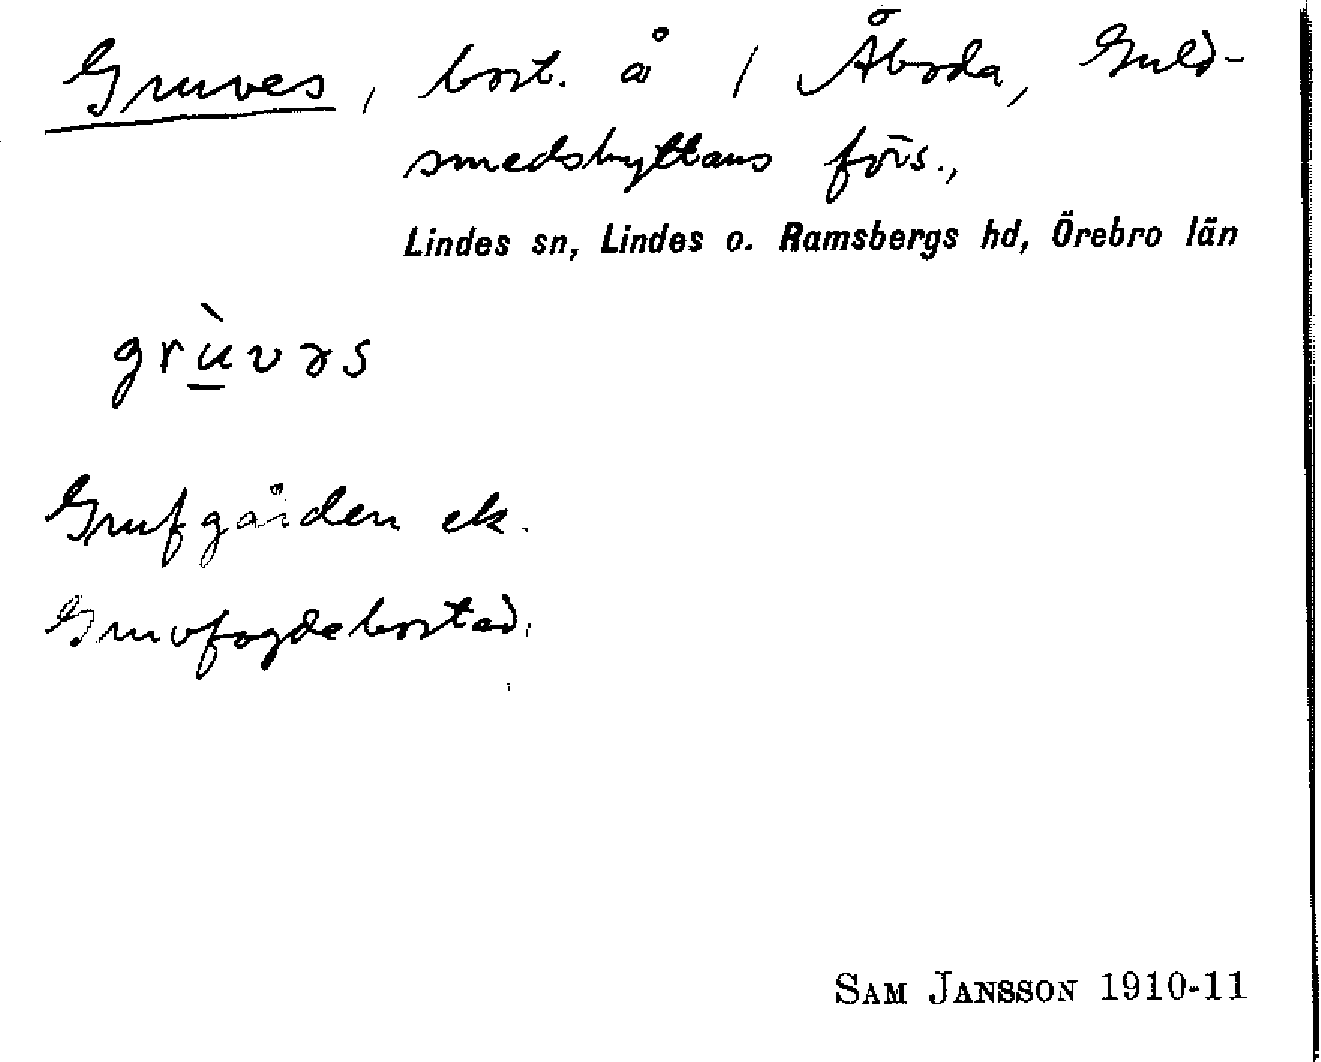 Gruves, bost. å 1 Åboda, Guld-
smedshyttans förs.,
Lindes sn, Lindes o. Ramsbergs hd, Örebro län
grù̱vəs
Grufgården ek.
Gruvfogdebostad.
SAM JANSSON 1910-11